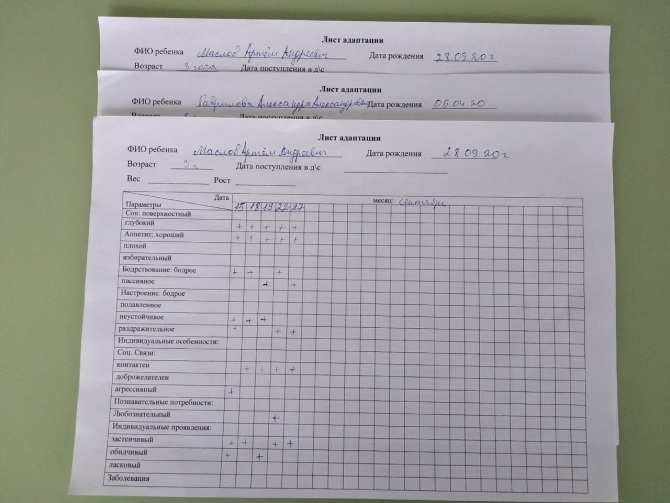 Лист адаптации
ФИО ребенка Маслов Артём Андреевич Дата рождения 28.09.20г
Возраст 3 года Дата поступления в д\с
Лист адаптации
ФИО ребенка Гаврилова Александра Александровна Дата рождения 05.04.20
Лист адаптации
ФИО ребенка Маслов Артём Андреевич Дата рождения 28.09.20г
Возраст 3г Дата поступления в д\с
Вес Рост
Дата месяц: сентябрь
Параметры 15 18 19 22 27
Сон: поверхностный
глубокий + + + + +
Аппетит: хороший + + + + +
плохой
избирательный
Бодрствование: бодрое + + +
пассивное + +
Настроение: бодрое
подавленное
неустойчивое + + +
раздражительное - + +
Индивидуальные особенности:
Соц. Связи:
контактен + + + +
доброжелателен
агрессивный +
Познавательные потребности:
Любознательный +
Индивидуальные проявления:
застенчивый + + + +
обидчивый + +
ласковый
Заболевания